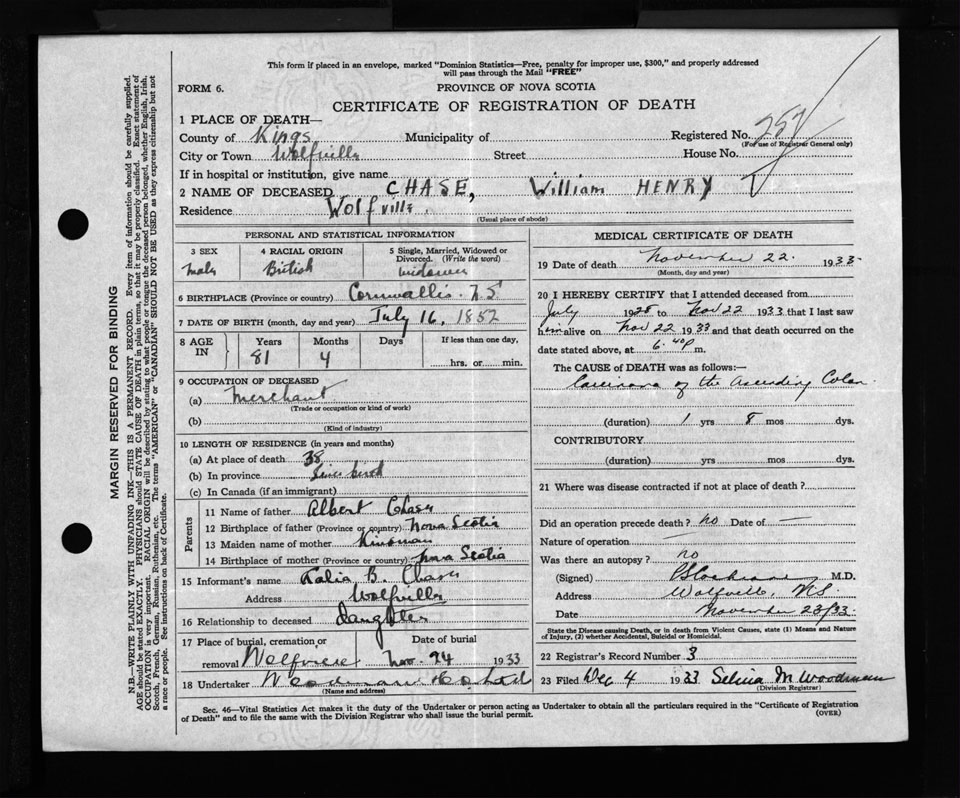 This form if placed in an envelope, marked "Dominion Statistics—Free, penalty for improper use, $300," and properly addressed
will pass through the Mail "FREE"
FORM 6.
PROVINCE OF NOVA SCOTIA
CERTIFICATE OF REGISTRATION OF DEATH
1 PLACE OF DEATH—
County of Kings Municipality of Registered No. 257
(For use of Registrar General only)
City or Town Wolfville Street House No.
If in hospital or institution, give name
2 NAME OF DECEASED CHASE, William HENRY
Residence Wolfville
(Usual place of abode)
PERSONAL AND STATISTICAL INFORMATION
3 SEX 4 RACIAL ORIGIN 5 Single, Married, Widowed or
Divorced. (Write the word)
Male British widower
6 BIRTHPLACE (Province or country) Cornwallis N.S
7 DATE OF BIRTH (month, day and year) July 16, 1852
8 AGE IN Years Months Days If less than one day,
81 4 hrs. or min.
9 OCCUPATION OF DECEASED
(a) Merchant
(Trade or occupation or kind of work)
(b)
(Kind of industry)
10 LENGTH OF RESIDENCE (in years and months)
(a) At place of death 38
(b) In province Since birth
(c) In Canada (if an immigrant)
Parents
11 Name of father Albert Chase
12 Birthplace of father (Province or country) Nova Scotia
13 Maiden name of mother Kinsman
14 Birthplace of mother (Province or country) Nova Scotia
15 Informant's name B. Chase
Address Wolfville
16 Relationship to deceased daughter
17 Place of burial, cremation or Date of burial
removal Wolfville Nov. 24 1933
18 Undertaker Woodman
(Name and address)
MEDICAL CERTIFICATE OF DEATH
19 Date of death November 22. 1933.
(Month, day and year)
20 I HEREBY CERTIFY that I attended deceased from
July 1928 to Nov 22 1933 that I last saw
him alive on Nov 22 1933 and that death occurred on the
date stated above, at 6.40 P m.
The CAUSE OF DEATH was as follows:—
Carcinoma of the Ascending Colon
(duration) 1 yrs 8 mos dys.
CONTRIBUTORY
(duration) yrs mos dys.
21 Where was disease contracted if not at place of death?
Did an operation precede death? no Date of —
Nature of operation —
Was there an autopsy? no
(Signed) M.D.
Address Wolfville, N.S
Date November 23/33.
State the Disease causing Death, or in death from Violent Causes, state (1) Means and Nature
of Injury, (2) whether Accidental, Suicidal or Homicidal.
22 Registrar's Record Number 3
23 Filed Dec 4 1933 Selina M Woodman
(Division Registrar)
Sec. 46—Vital Statistics Act makes it the duty of the Undertaker or person acting as Undertaker to obtain all the particulars required in the "Certificate of Registration
of Death" and to file the same with the Division Registrar who shall issue the burial permit.
(OVER)
MARGIN RESERVED FOR BINDING
N.B.—WRITE PLAINLY, WITH UNFADING INK—THIS IS A PERMANENT RECORD. Every item of information should be carefully supplied.
AGE should be stated EXACTLY. PHYSICIANS should STATE CAUSE OF DEATH in plain terms, so that it may be properly classified. Exact statement of
OCCUPATION is very important. RACIAL ORIGIN will be described by stating to what people or tongue the deceased person belonged, whether English, Irish,
Scotch, French, German, Russian, Ruthenian, etc. The terms "AMERICAN" or "CANADIAN" SHOULD NOT BE USED as they express citizenship but not
a race or people. See instructions on back of Certificate.